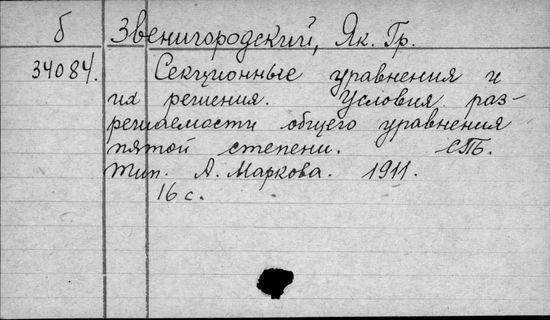 б Звенигородский, Як. Гр.
34084. Секционные уравнения и
их решения. Условия раз-
решаемости общего уравнения
пятой степени. СПБ.
Тип. А. Маркова. 1911.
16 с.